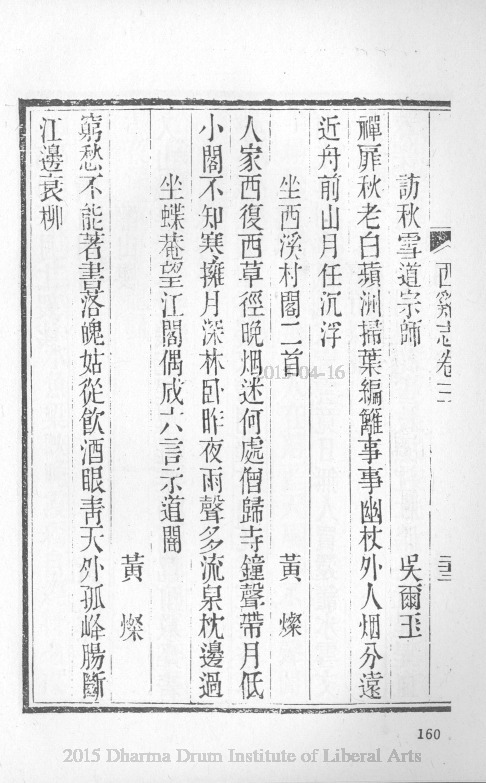 西谿志卷三
三三
訪秋雪道宗師
吳爾玉
禪扉秋老白蘋洲掃葉編籬事事幽杖外人烟分遠
近舟前山月任沉浮
坐西溪村閣二首
黃燦
人家西復西草徑晚烟迷何處僧歸寺鐘聲帶月低
小閣不知寒擁月深林卧昨夜雨聲多流泉枕邊過
坐蝶菴望江閣偶成六言示道闇
黃燦
窮愁不能著書落魄姑從飲酒眼青天外孤峰腸斷
江邊衰柳
2015-04-16
160
2015 Dharma Drum Institute of Liberal Arts